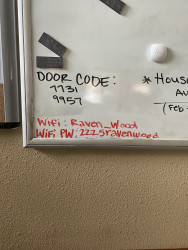 DOOR CODE:
7731
9957
* HOUS
AU
(Feb
WiFi: Raven_Wood
WiFi PW: 2225ravenwood